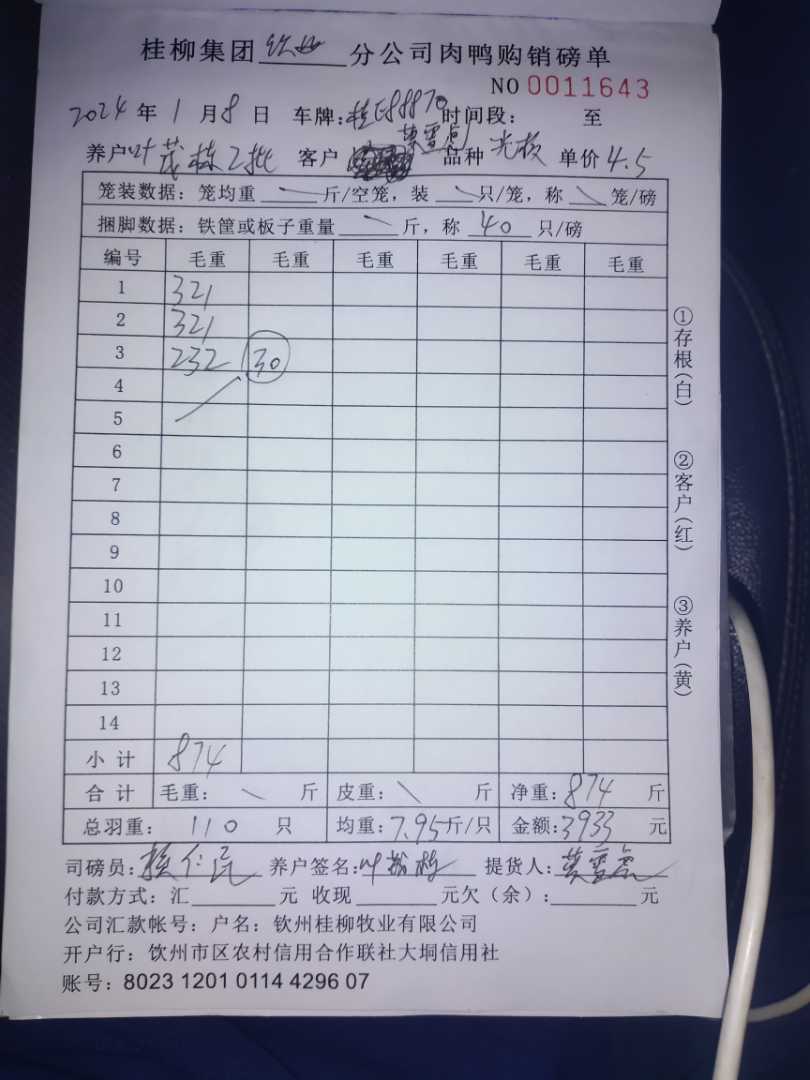 桂柳集团钦州分公司肉鸭购销磅单
NO 0011643
2024年1月8日 车牌:桂E88870 时间段: 至
养户叶茂栋乙批 客户 品种 光板 单价4.5
笼装数据：笼均重 斤/空笼，装 只/笼，称 笼/磅
捆脚数据：铁筐或板子重量 斤，称 40 只/磅
编号 毛重 毛重 毛重 毛重 毛重 毛重
1 321
2 321
3 232 30
4
5
6
7
8
9
10
11
12
13
14
小计 874
合计 毛重： 斤 皮重： 斤 净重：874 斤
总羽重： 110 只 均重：7.95斤/只 金额：3933 元
司磅员： 养户签名： 提货人：
付款方式：汇 元 收现 元欠（余）： 元
公司汇款帐号：户名：钦州桂柳牧业有限公司
开户行：饮州市区农村信用合作联社大垌信用社
账号：8023 1201 0114 4296 07
①存根(白)
②客户(红)
③养户(黄)